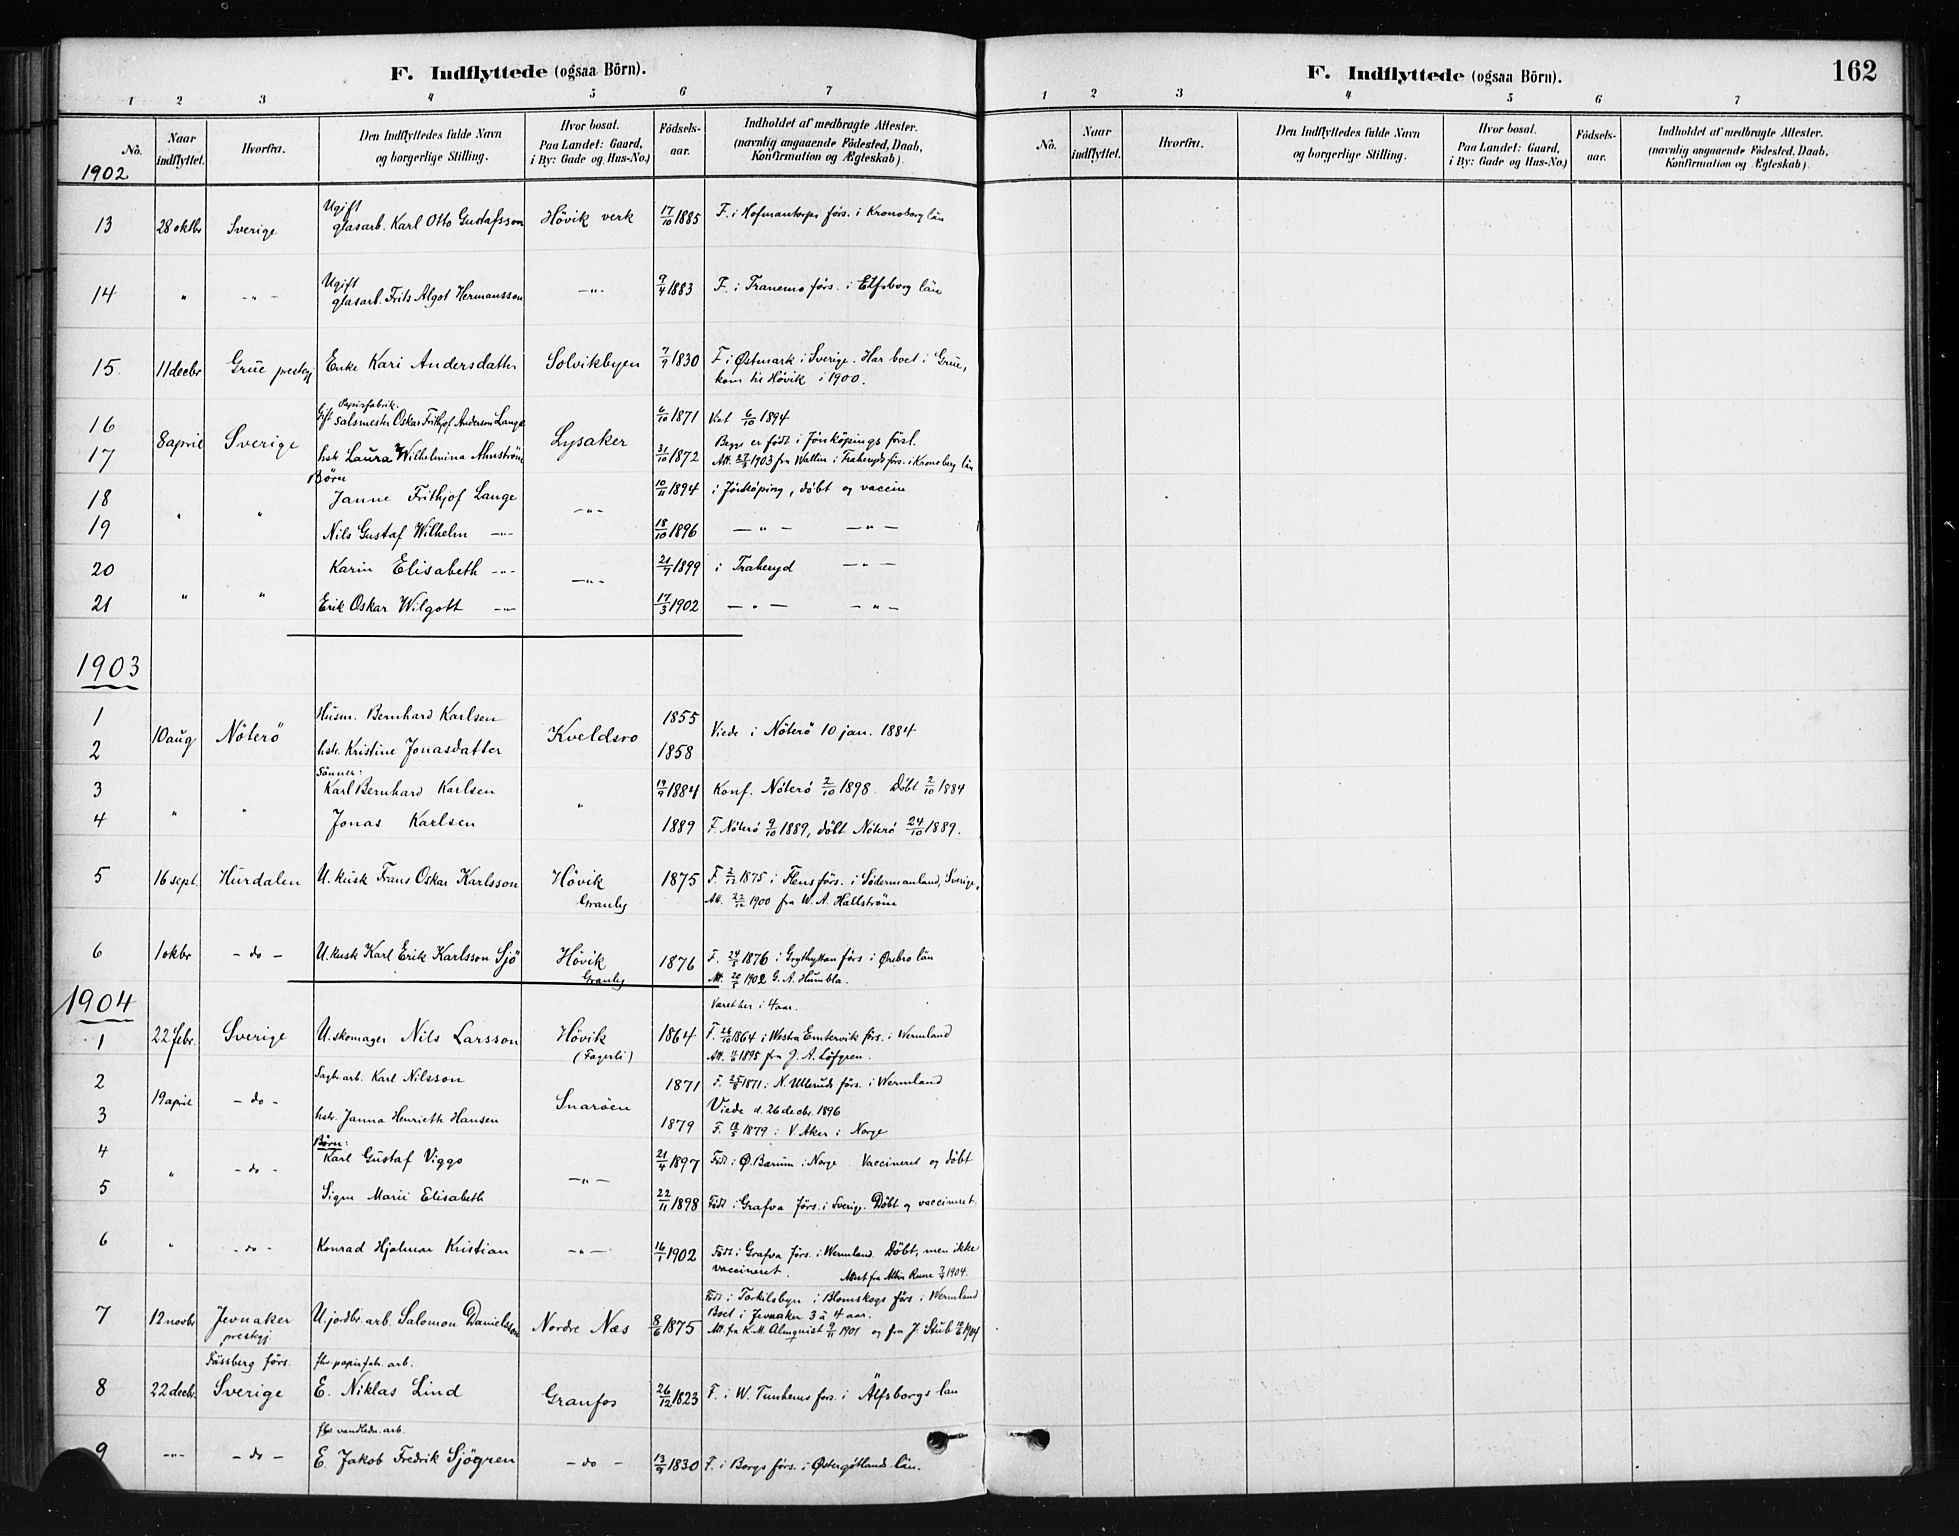 F. Indflyttede (ogsaa Börn).
1 2 3 4 5 6 7
No. Naar indflyttet. Hvorfra. Den Indflyttedes fulde Navn og borgerlige Stilling. Hvor bosat. Paa Landet: Gaard, i By: Gade og Hus-No.) Födsels-aar. Indholdet af medbragte Attester. (navnlig angaaende Födested, Daab, Konfirmation og Ægteskab).
1902
13 28 oktbr Sverige Ugift glasarb. Karl Otto Gustafsson Hövik verk 17/10 1885 F. i Hofmantorps förs. i Kronoborg län
14 " -"- Ugift glasarb. Frits Algot Hermansson -"- 9/4 1883 F. i Tranemo förs. i Elfsborg län
15 11 decbr Grue prestgj Enke Kari Andersdatter Solvikbyen 7/9 1830 F. i Østmark i Sverige. Har boet i Grue,
kom til Hövik i 1900.
16 8 april Sverige Gift Papirfabrik. salsmester Oskar Frithjof Anderson Lange Lysaker 6/10 1871 Viet 6/10 1894
17 hstr Laura Wilhelmina Almström 31/10 1872 Begge er födt i Jönköpings förs.
Att. 1903 fra Wallin i Traheryds förs. i Kronoberg län
Børn
18 " " Janne Frithjof Lange -"- 10/11 1894 i Jönköping, döbt og vaccin
19 Nils Gustaf Wilhelm -"- 18/10 1896 -"- -"-
20 Karin Elisabeth -"- -"- 21/7 1899 i Traheryd -"-
21 " " Erik Oskar Wilgott -"- 17/3 1902 -"- -"-
1903
1 10 aug Nöterö Husm. Bernhard Karlsen Kveldsro 1855 Viede i Nöterö 10 jan. 1884
2 hstr. Kristine Jonasdatter 1858
Sönner:
3 Karl Bernhard Karlsen " 19/9 1884 Konf. Nöterö 2/10 1898. Döbt 2/10 1884
4 " " Jonas Karlsen 1889 F. Nöterö 9/10 1889, döbt Nöterö 24/10 1889.
5 16 sept. Hurdalen U. kusk Frans Oskar Karlsson Hövik Granly 1875 F. 2/12 1875 i Flens förs. i Södermanland, Sverige,
Att. 22/12 1900 fra W. A. Hallström
6 1 okbr - do - U. kusk Karl Erik Karlsson Sjö Hövik Granly 1876 F. 24/5 1876 i Grythyttan förs i Ørebro län
Att. 20/5 1902 G. A. Humbla.
1904
Været her i 4 aar.
1 22 febr. Sverige U. skomager Nils Larsson Hövik (Fagerli) 1864 F. 26/10 1864 i Westra Emtervik förs. i Wermland
Att. 1895 fra J. A. Löfgren.
2 19 april - do - Sagbr. arb. Karl Nilsson Snaröen 1871 F. 1871 i N. Ullerud förs. i Wermland
Viede d. 26 decbr. 1896
3 hstr. Janna Henrieth Hansen 1879 F. 18/5 1879 i V. Aker i Norge
Børn:
4 " - do - Karl Gustaf Viggo -"- 21/4 1897 Födt i Ø. Bærum i Norge. Vaccineret og döbt
5 Signe Marie Elisabeth 22/11 1898 Födt i Grafva förs. i Sverige. Döbt og vaccineret.
6 " - do - Konrad Hjalmar Kristian -"- 16/1 1902 Födt i Grafva förs. i Wermland. Döbt, men ikke
vaccineret. Attest fra Albin Rune 1904.
7 12 novbr Jevnaker prestgj U. jordbr. arb. Salomon Danielsson Nordre Næs 8/6 1875 Födt i Torkilsbyn i Blomskogs förs i Wermland
Boet i Jevnaker 3 à 4 aar.
Att. fra K. M. Almquist 9/11 1901 og fra J. Stub 1904
8 22 decbr. Fässberg förs. Sverige fhv. papirfabr. arb. E. Niklas Lind Granfos 26/12 1823 F. i W. Tunhems fors. i Älfsborgs lan
9 -"- - do - fhv vandledn. arb. E. Jakob Fredrik Sjögren - do - 13/9 1830 F. i Borgs förs. i Østergötlands län.
F. Indflyttede (ogsaa Börn). 162
1 2 3 4 5 6 7
No. Naar indflyttet. Hvorfra. Den Indflyttedes fulde Navn og borgerlige Stilling. Hvor bosat. Paa Landet: Gaard, i By: Gade og Hus-No.) Födsels-aar. Indholdet af medbragte Attester. (navnlig angaaende Födested, Daab, Konfirmation og Ægteskab).